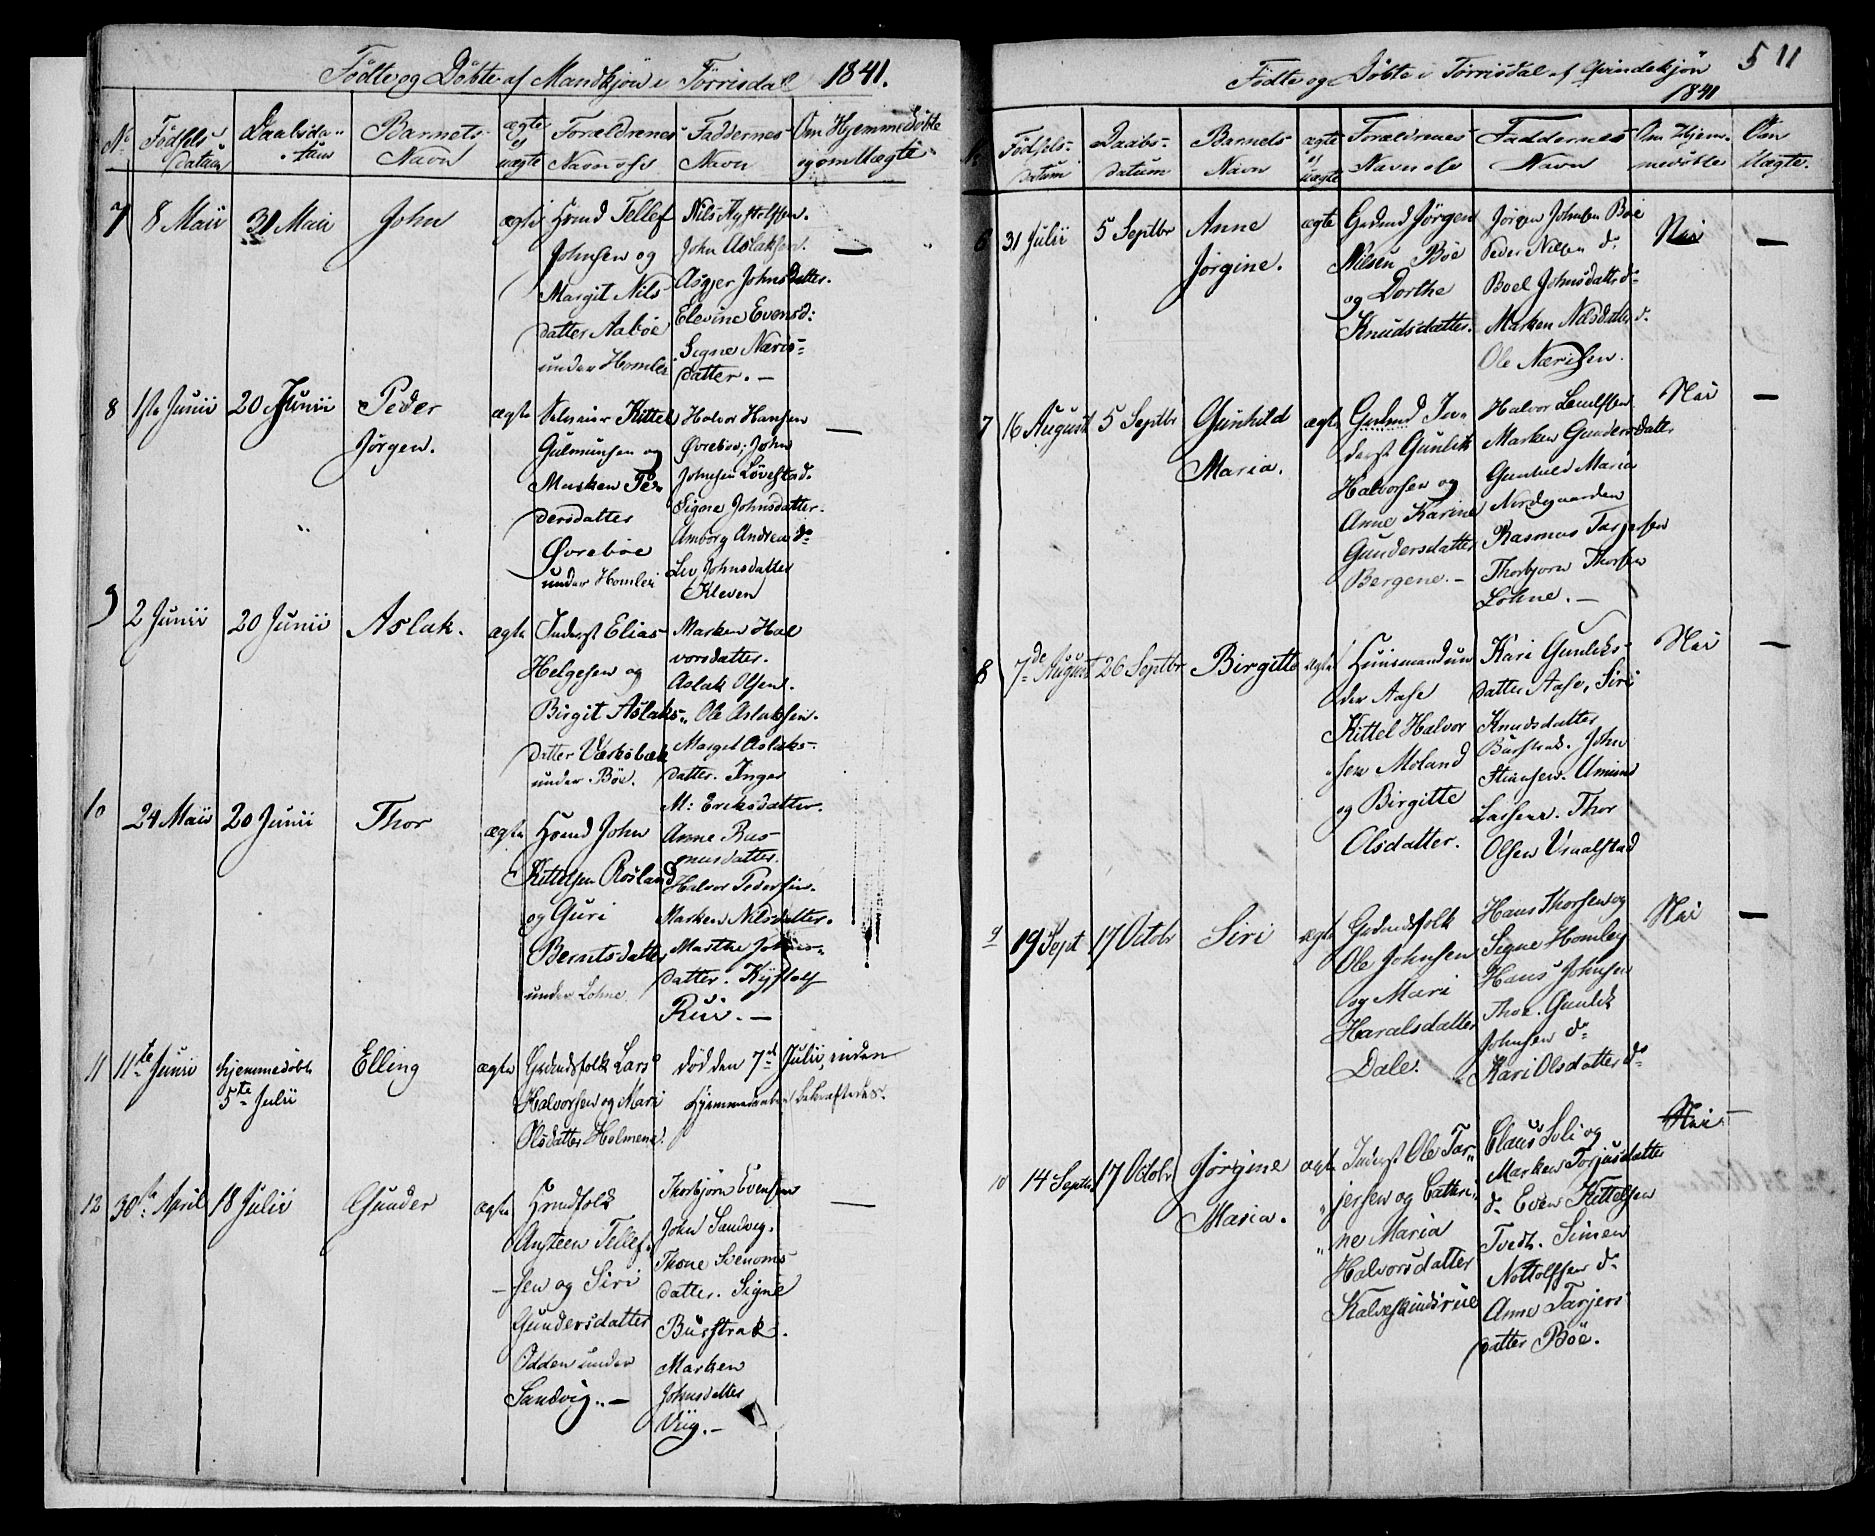 Fødte og Døbte af Mandkjøn i Torrisdal 1841.
No Fødsels datum Daabsda- tum Barnets Navn ægte ej uægte Forældrenes Navn ofs Faddernes Navn Om Hjemmedøbte og om Uægte
7 8 Maii 31 Maii John ægte
Tellef
Johnsen og
Margit Nils
datter Aabøe
under Homlei
Nils Kystolfsen.
John Aslaksen.
Asgjer Johnsdatter.
Elevine Evensd:
Signe Næris-
datter. —
8 1ste Junii 20 Junii Peder
Jørgen.
ægte
Kittel
Gulmunsen og
Marken Pe-
dersdatter
Øvrebøe
under Homlei
Halvor Hansen
Øvrebøe, John
Johnsen Løvestad.
Signe Johnsdatter.
Amborg Andrea do
Liv Johnsdatter
Kleven
9 2 Junii 20 Junii Aslak. ægte
Inderst Elias
Helgesen og
Birgit Aslaks-
datter Værksbæk
under Bøe.
Marken Hal
vorsdatter.
Aslak Olsen.
Ole Aslaksen.
Marget Aslaks-
datter. Inger
M: Eriksdatter.
10 24 Maii 20 Junii Thor ægte
John
Kittelsen Røsland
og Guri
Berntsdatter
under Lohne.
Anne Ras
musdatter.
Halvor Pedersen.
Marken Nilsdatter.
Marthe Johns-
datter. Kystolf
Rui. —
11 11te Junii hjemmedøbt
5te Julii
Elling ægte
Grdmdsfolk Lars
Halvorsen og Mari
Olsdatter Holmene.
død den 7de Julii, inden
Hjemmedaaben bekræftedes.
12 30te April 18 Julii Gunder ægte
Ansteen Tellef-
sen og Siri
Gundersdatter
Odden under
Sandvig. —
Thorbjørn Evensen
John Sandvig.
Thone Svenoms-
datter. Signe
Busstrak.
Marken
Johnsdatter
Viig. —
Fødte og Døbte i Torrisdal af Qvindekjøn 5 11
1841
Fødsels- datum Daabs- datum Barnets Navn ægte ej uægte Forældrenes Navn ofs Faddernes Navn Om Hjem- medøbte Om Uægte.
6 31 Julii 5 Septbr Anne
Jørgine.
ægte
Grdmd Jørgen
Nilsen Bøe
og Dorthe
Knudsdatter.
Jørgen Johnsen Bøe
Peder Nilsen d.
Boel Johnsdatter do
Marken Nilsdatter d.
Ole Nærisen.
Nei —
7 16 August 5 Septbr Gunhild
Maria.
ægte
Grdmd In-
derst Gunlik
Halvorsen og
Anne Karine
Gundersdatter
Bergene. —
Halvor
Marken Gundersdatter
Gunhild Maria
Nordgaarden
Rasmus Tarjersen
Thorbjørn Thorsen
Lohne. —
Nei —
8 7de August 26 Septbr Birgitte ægte
Huusmand un
der Aase
Kittel Halvor
sen Moland
og Birgitte
Olsdatter.
Kari Gunleks-
datter Aase, Siri
Knudsdatter
Busstrak. John
Steensen. Amund
Larsen. Thor
Olsen Vraalstad
Nei —
9 19 Sept 17 Octobr Siri ægte
Grdmdsfolk
Ole Johnsen
og Mari
Haralsdatter
Dale.
Hans Thorsen og
Signe Homley
Hans Johnsen
Thor. Gunlek
Johnsen do
Kari Olsdatter do
Nei —
10 14 Septbr 17 Octobr Jørgine
Maria.
ægte
Inderst Ole Tar-
jersen og Cathri-
ne Maria
Halvorsdatter
Kalveskindsrue
Claus Soli og
Marken Torjusdatter
d. Even Kittelsen
Tvedt. Simen
Nottolfsen do
Anne Tarjers
datter Bøe.
Nei —